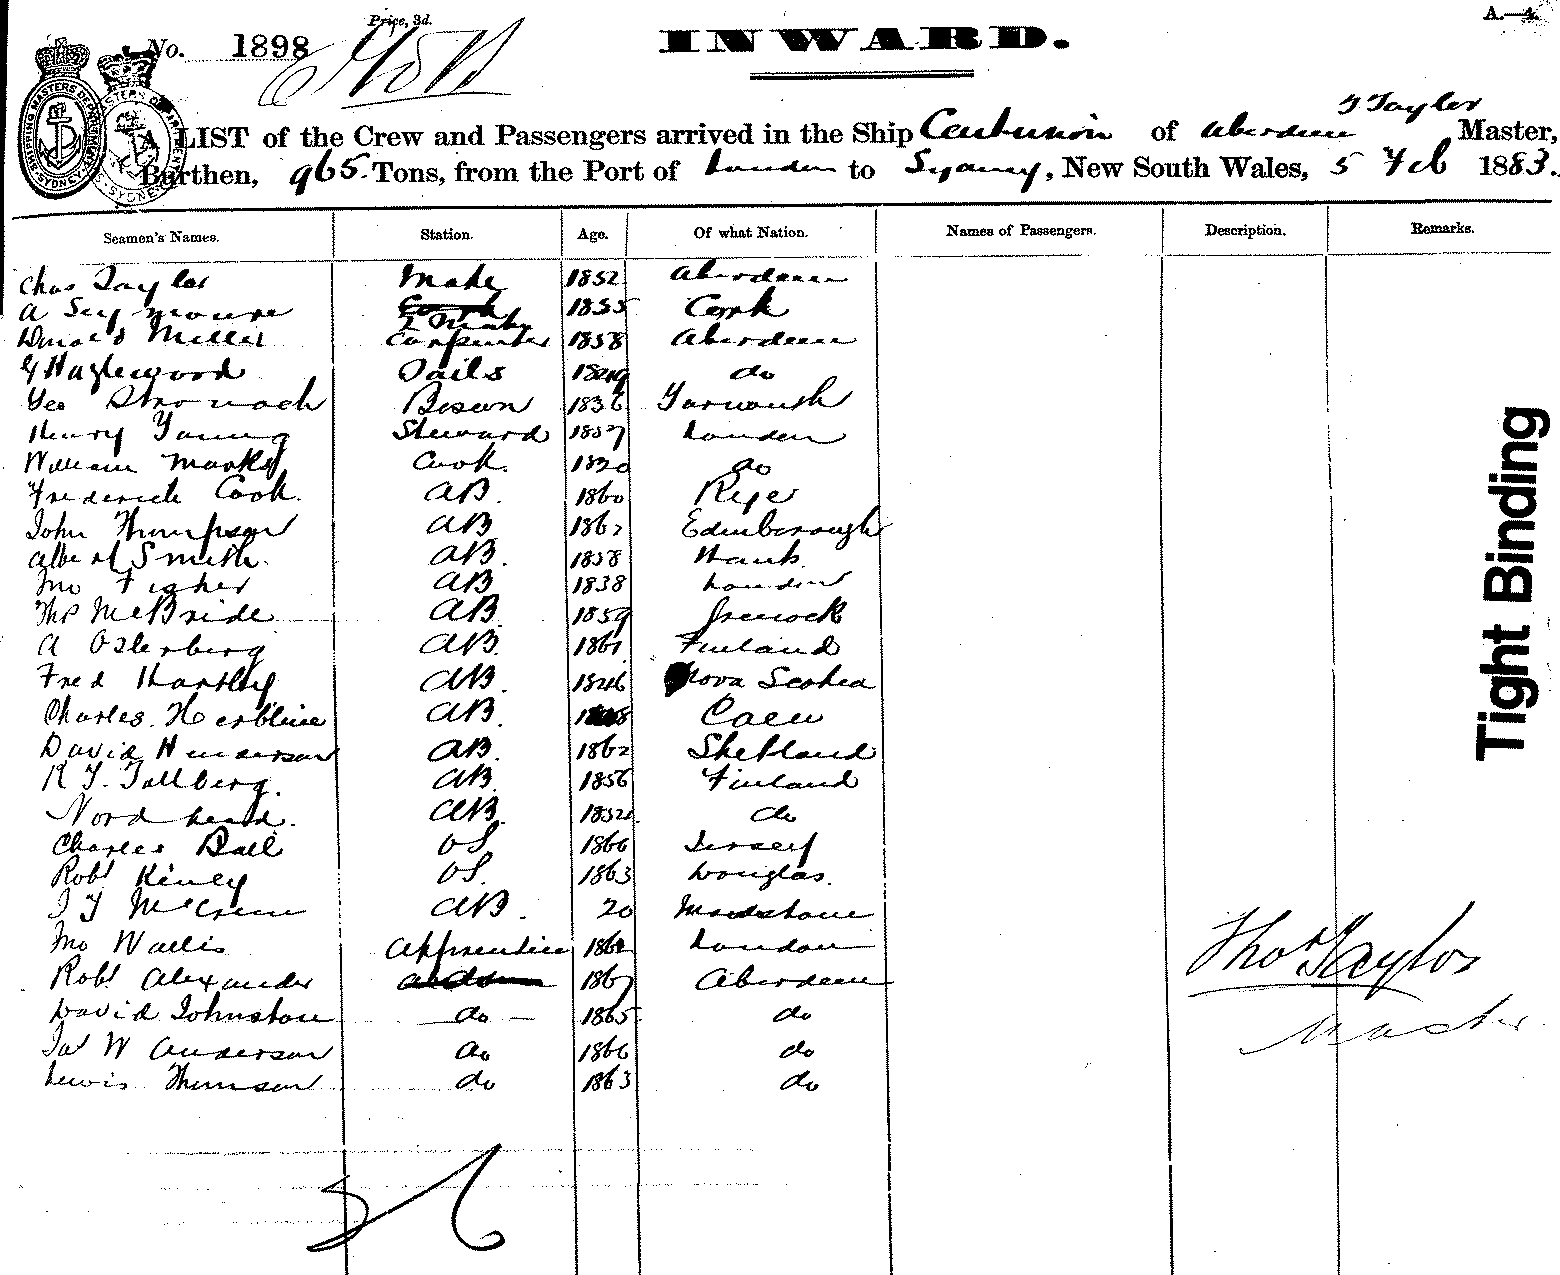 Price, 3d.
A.—4.
No. 1898
INWARD.
T Taylor
A LIST of the Crew and Passengers arrived in the Ship Centurion of Aberdeen Master,
Burthen, 965 Tons, from the Port of London to Sydney, New South Wales, 5 Feb 1883.
Seamen's Names. Station. Age. Of what Nation. Names of Passengers. Description. Remarks.
Chas Taylor Mate 1852 Aberdeen
A Seymoure 2 Mate 1855 Cork
Donald Miller Carpenter 1858 Aberdeen
G Hazlewood Sails 1849 do
Geo Stronach Bosun 1836 Yarmouth
Henry Young Steward 1857 London
William Marks Cook 1830 do
Frederick Cook AB. 1860 Rye
John Thompson AB 1862 Edinborough
Albert Smith AB. 1858 Hants
Jno Fisher AB 1838 London
Thos McBride AB 1859 Greenock
A Osterberg AB. 1861 Finland
Fred Hartley AB. 1846 Nova Scotia
Charles AB. Caen
David Henderson AB. 1862 Shetland
K F. Tallberg. AB 1856 Finland
Nord AB. 1852 do
Charles Ball OS 1866 Jersey
Robt Kinley OS. 1863 Douglas.
AB. 20 Maidstone
Jno Wallis Apprentice 1862 London
Robt Alexander 1867 Aberdeen
David Johnston do 1865 do
Jas W Anderson do 1866 do
Lewis Thomson do 1863 do
Thos Taylor
Master
Tight Binding